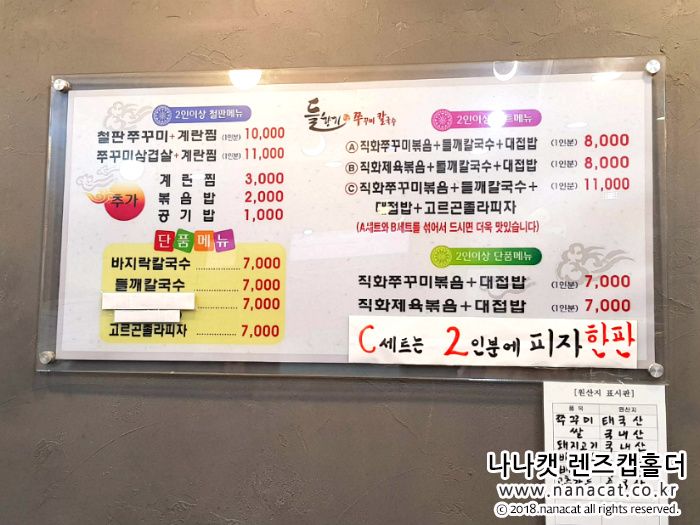 2인이상 철판메뉴
철판쭈꾸미+계란찜 (1인분) 10,000
쭈꾸미삼겹살+계란찜 (1인분) 11,000
추가
계란찜 3,000
볶음밥 2,000
공기밥 1,000
단품메뉴
바지락칼국수 7,000
들깨칼국수 7,000
7,000
고르곤졸라피자 7,000
쭈꾸미 칼국수
2인이상
메뉴
Ⓐ직화쭈꾸미볶음+들깨칼국수+대접밥 (1인분) 8,000
Ⓑ직화제육볶음+들깨칼국수+대접밥 (1인분) 8,000
Ⓒ직화쭈꾸미볶음+들깨칼국수+ (1인분) 11,000
대접밥+고르곤졸라피자
(A세트와 B세트를 섞어서 드시면 더욱 맛있습니다)
2인이상 단품메뉴
직화쭈꾸미볶음+대접밥 (1인분) 7,000
직화제육볶음+대접밥 (1인분) 7,000
C세트는 2인분에 피자한판
[원산지 표시판]
품목 원산지
쭈꾸미 태국산
쌀 국내산
돼지고기 국내산
나나캣 렌즈캡홀더
www.nanacat.co.kr
© 2018.nanacat all rights reserved.